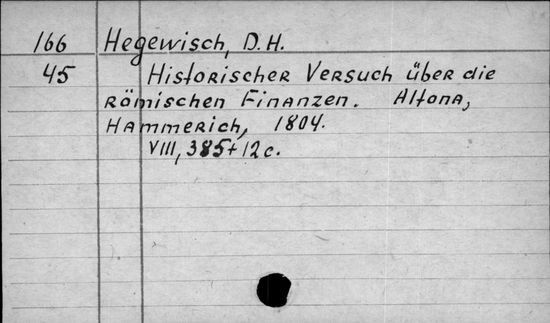 166 Hegewisch, D. H.
45 Historischer Versuch über die
römischen Finanzen. Altona,
Hammerich, 1804.
VIII, 385+12 c.